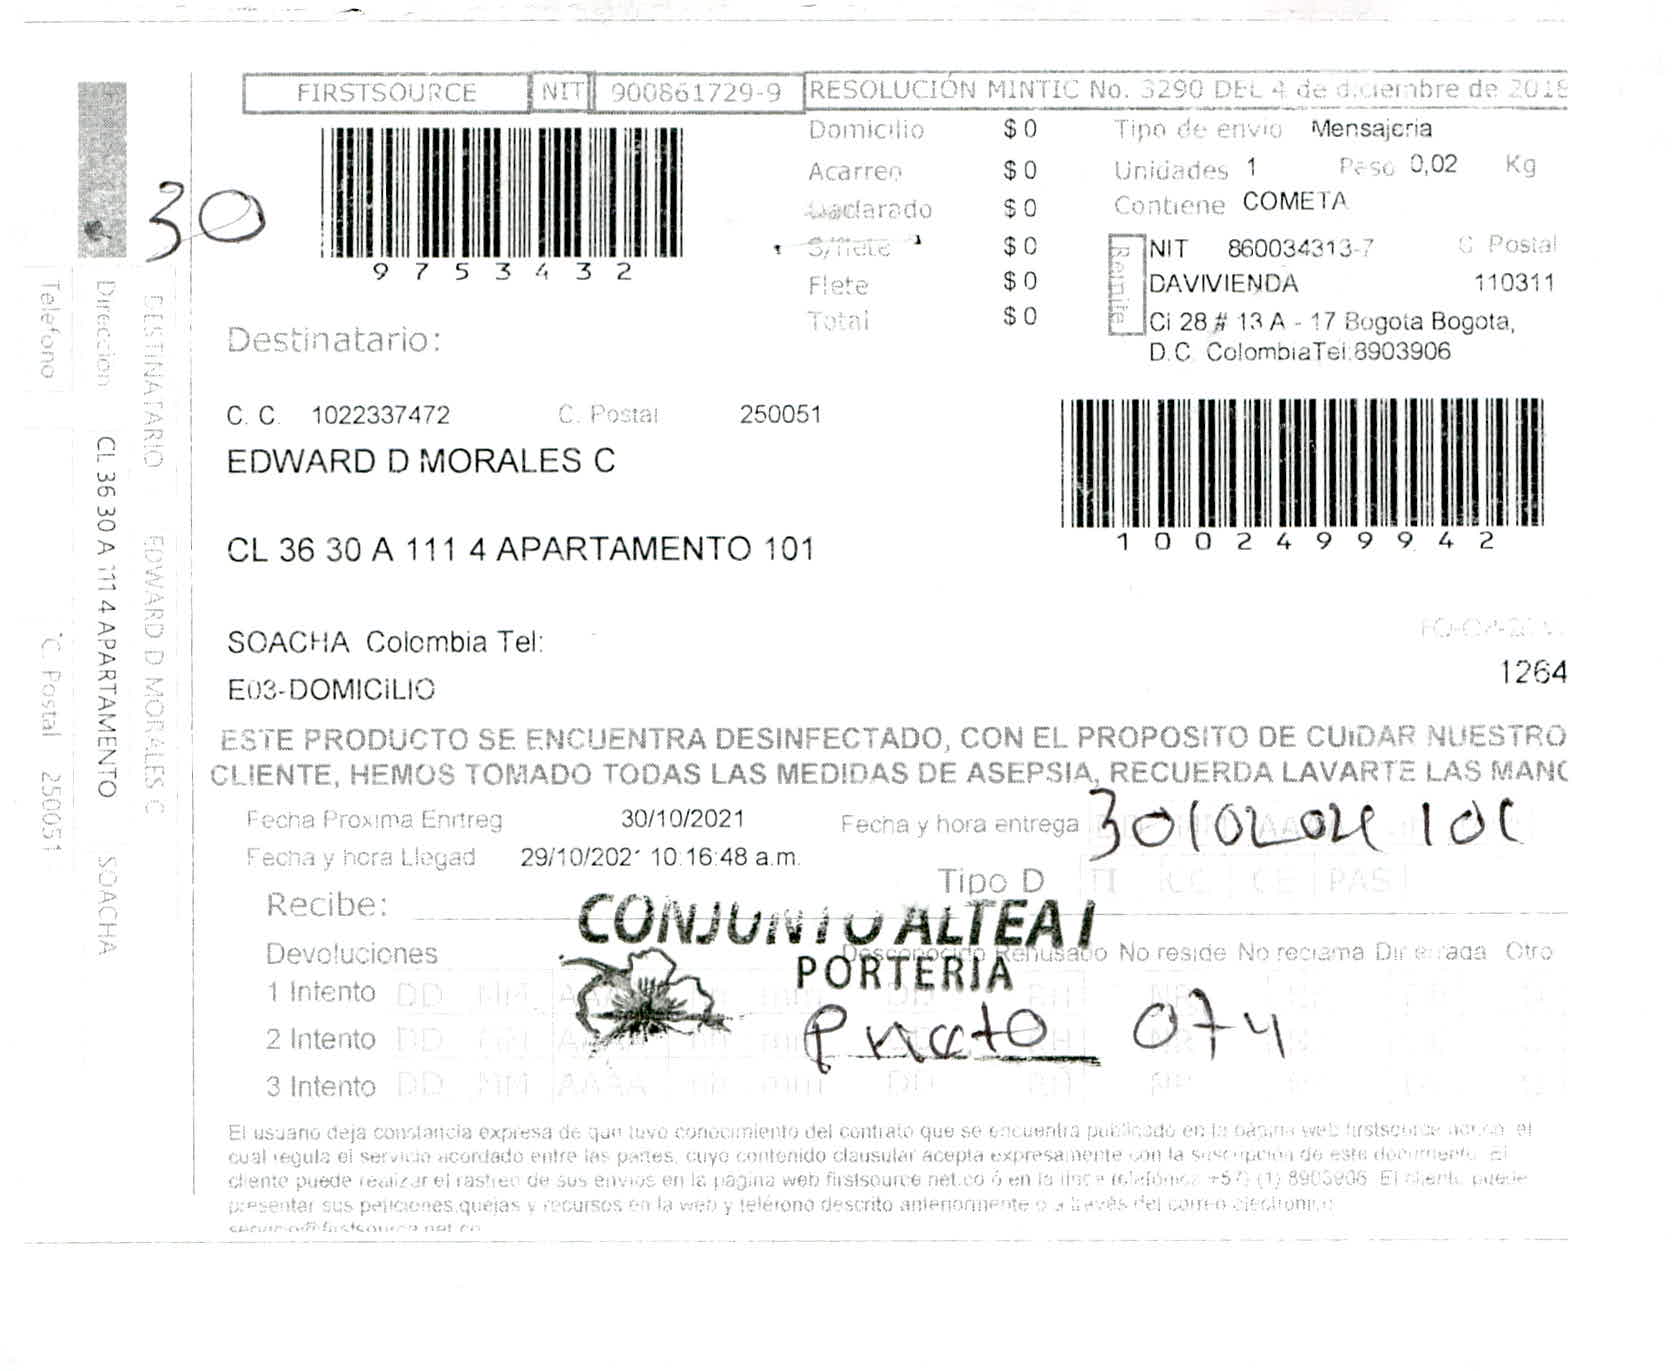 FIRSTSOURCE NIT 900861729-9 RESOLUCIÓN MINTIC No. 3290 DEL 4 de diciembre de 2018
30
9753432
Domicilio $ 0
Acarreo $ 0
Declarado $ 0
S/flete $ 0
Flete $ 0
Total $ 0
Tipo de envio Mensajeria
Unidades 1 Peso 0,02 Kg
Contiene COMETA
Remite
NIT 860034313-7 C Postal
DAVIVIENDA 110311
Cl 28 # 13 A - 17 Bogota Bogota,
D.C. ColombiaTel:8903906
Destinatario:
C. C. 1022337472 C. Postal 250051
EDWARD D MORALES C
CL 36 30 A 111 4 APARTAMENTO 101
10024999942
SOACHA Colombia Tel:
E03-DOMICILIO
1264
ESTE PRODUCTO SE ENCUENTRA DESINFECTADO, CON EL PROPOSITO DE CUIDAR NUESTRO
CLIENTE, HEMOS TOMADO TODAS LAS MEDIDAS DE ASEPSIA, RECUERDA LAVARTE LAS MANO
Fecha Proxima Enrtreg 30/10/2021 Fecha y hora entrega
Fecha y hora Llegad 29/10/2021 10:16:48 a.m.
Tipo D TI C.C CE PAS
Recibe:
CONJUNTO ALTEA I
PORTERIA
074
Devoluciones Desconocido Rehusado No reside No reclama Dir errada Otro
1 Intento DD MM AAAA hh mm DD RH NR
2 Intento DD MM AAAA hh mm RH NR
3 Intento DD MM AAAA hh mm DD RH NR
El usuario deja constancia expresa de que tuvo conocimiento del contrato que se encuentra publicado en la pagina web firstsource.net.co, el
cual regula el servicio acordado entre las partes, cuyo contenido clausular acepta expresamente con la suscripción de este documento. El
cliente puede realizar el rastreo de sus envios en la pagina web firstsource.net.co ó en la linea telefónica +57 (1) 8903906 El cliente puede
presentar sus peticiones,quejas y recursos en la web y teléfono descrito anteriormente o a través del correo electronico
servicio@firstsource.net.co
DESTINATARIO EDWARD D MORALES C
Direccion CL 36 30 A 111 4 APARTAMENTO SOACHA
Telefono C. Postal 250051